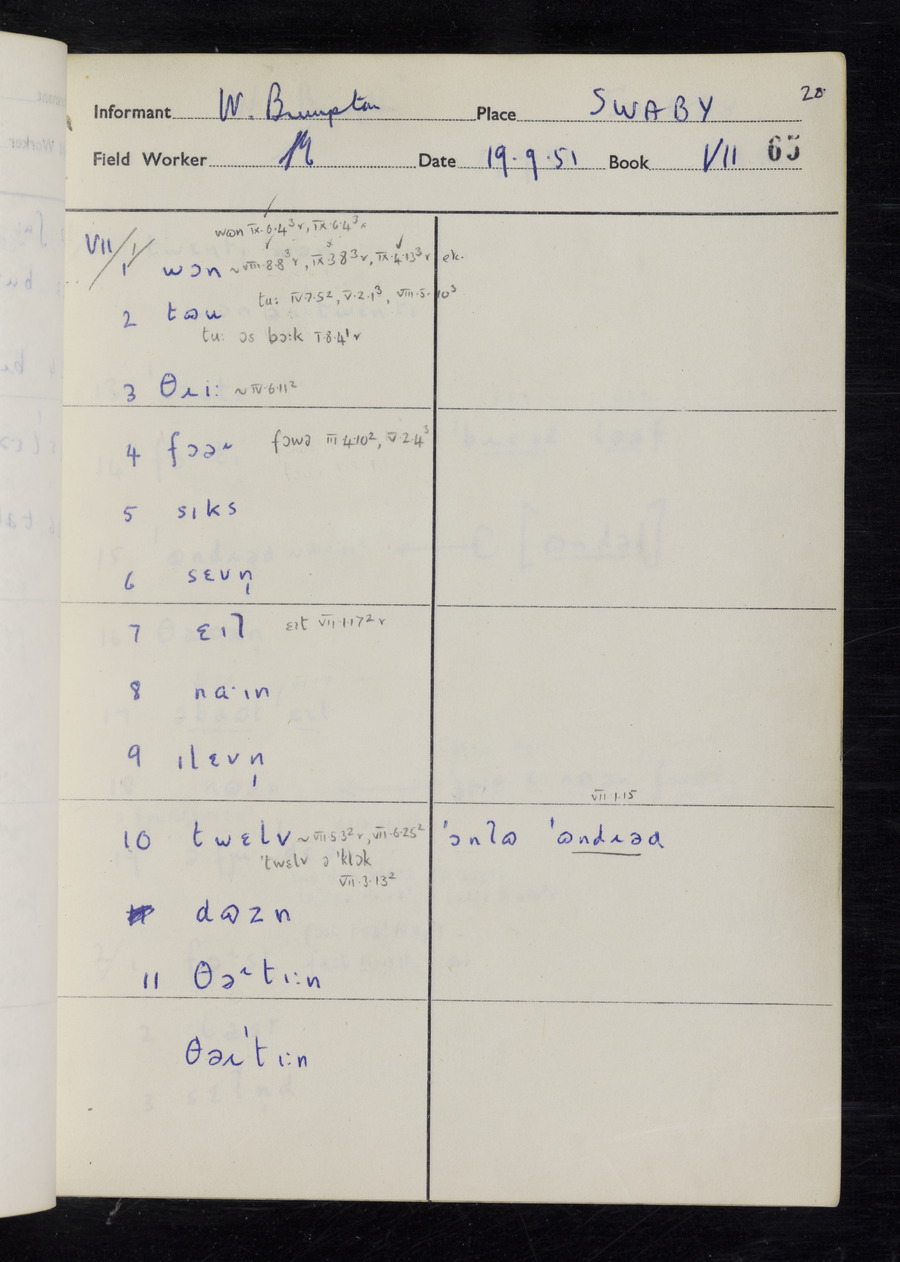 28
Informant W. Brumpton Place SWABY
Field Worker Date 19.9.51 Book VII 65
wɷn IX.6.4³ r, IX.6.4³
VII/1/
1 wɔn ~ VIII.8.8³ r, IX.3.8³ r, IX.4.13³ r etc.
tu: IV.7.5², V.2.1³, VIII.5.10³
2 tɷu
tu: əs bɔ:k I.8.4¹ r
3 θɹi: ~ IV.6.11²
4 fɔəɹ fɔwə III.4.10², V.2.4³
5 sɪks
6 sɛvn̩
7 ɛɪʔ ɛɪt VII.1.17² r
8 na·ɪn
9 ɪlɛvn̩
VII.1.15
10 twɛlv ~ VII.5.3² r, VII.6.25² 'ɔnlɷ 'ɷndɹəd
'twɛlv ə 'klɔk
VII.3.13²
dɷzn
11 θəɹti:n
θəɹ'ti:n